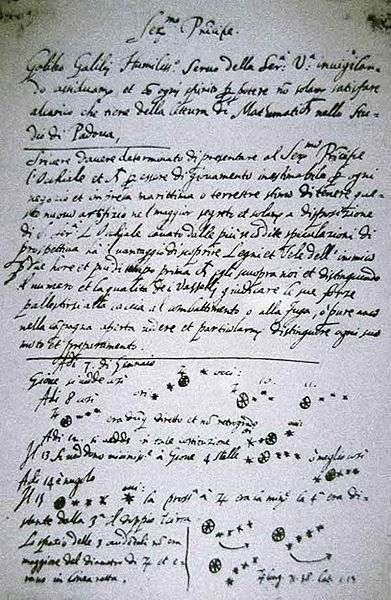 Ser.mo Principe.
Galileo Galilei Humiliss.o Servo della Ser.a V.a invigilan-
do assiduamente, et co ogni spirito p potere no solam satisfare
alcarico che tiene della lettura di Mathematiche nello Stu-
dio di Padova,
Scrivere d'avere determinato di presentare al Ser.mo Principe
l'Occhiale et p essere di giovamento inestimabile p ogni
negozio et impresa marittima o terrestre stimo di tenere que-
sto nuovo artifizio nel maggior segreto et solam a disposizione
di S. Ser.a L'Occhiale cavato dalle più recondite speculazioni di
prospettiva ha il vantaggio di scoprire Legni et Vele dell'inimico
p due hore et più di tempo prima ch egli scuopra noi et distinguendo
il numero et la qualità de Vasselli giudicare le sue forze
pallestirsi alla caccia al combattimento o alla fuga, o pure anco
nella campagna aperta vedere et particolarm distinguere ogni suo
moto et preparamento.
Adi 7. di Gennaio
Giove si vede così
Adi 8 così
era dunque diretto et no retrogrado
Adi 12. si vedde in tale costituzione
Il 13 si veddono vicinissime a Giove 4 stelle o meglio così
Adi 14 è nugolo
Il 15 la pross.a a 4 era la min.e la 4.a era di-
stante dalla 3.a il doppio circa
Lo spazio delle 3 occidentali no era
maggiore del diametro di 4 et e-
rano in linea retta.